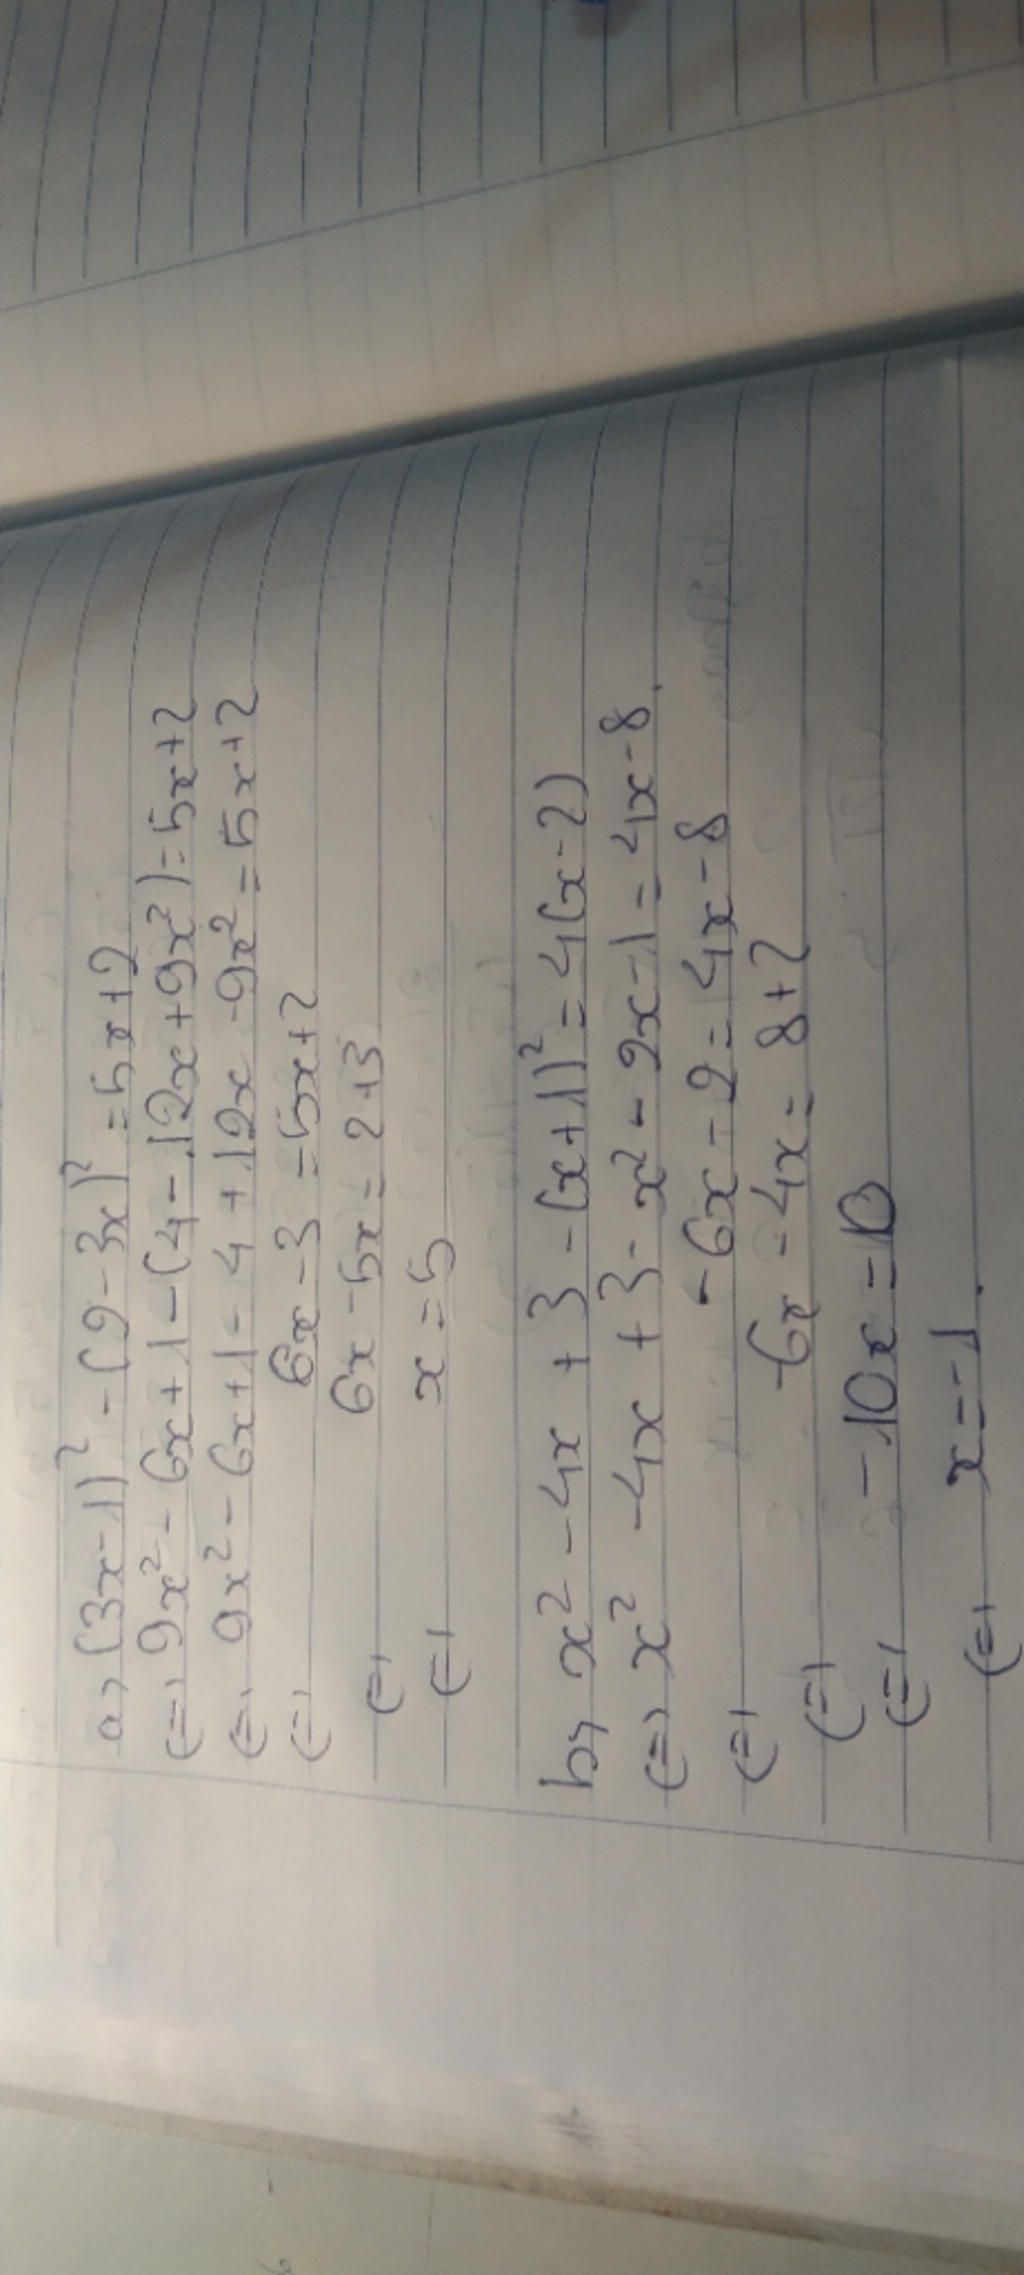 a, (3x-1)² - (2-3x)² = 5x+2
(=) 9x² - 6x+1 - (4-12x+9x²) = 5x+2
(=) 9x² - 6x+1 - 4 + 12x - 9x² = 5x+2
(=) 6x - 3 = 5x+2
(=) 6x - 5x = 2+3
(=) x = 5
b, x² - 4x + 3 - (x+1)² = 4(x-2)
(=) x² - 4x + 3 - x² - 2x - 1 = 4x - 8
(=) -6x - 2 = 4x - 8
(=) -6x - 4x = 8+2
(=) -10x = 10
(=) x = -1.